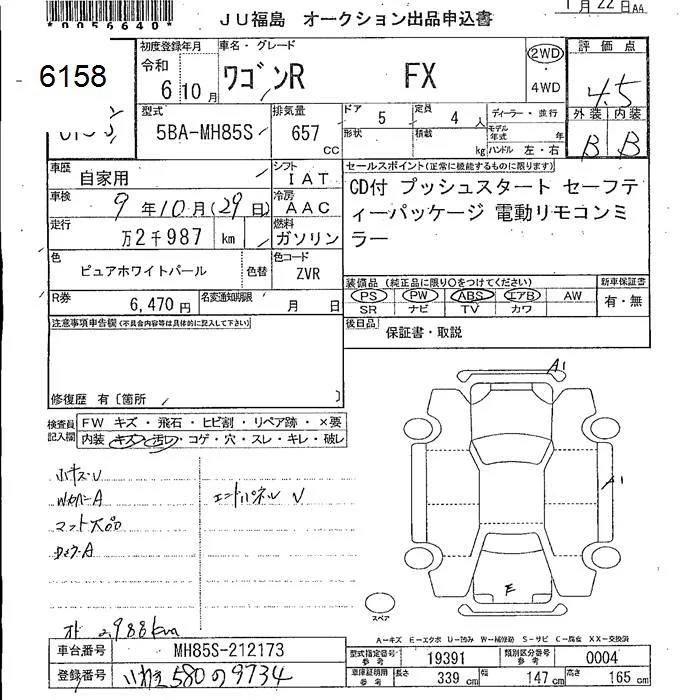 *0056640*
JU福島 オークション出品申込書
1月22日AA
6158
初度登録年月 車名・グレード
令和
6 10月 ワゴンR FX
2WD
・
4WD
評価点
4.5
外装 内装
B B
型式 排気量
5BA-MH85S 657 CC
ドア 定員 ディーラー・並行
5 4人
形状 積載 kg
モデル年式 年
ハンドル 左・右
車歴 シフト
自家用 IAT
車検 冷房
9年10月(29日) AAC
走行 燃料
万2千987 km ガソリン
色 色コード
ピュアホワイトパール 色替 ZVR
R券 名変通知期限
6,470円 月 日
セールスポイント(正常に機能するものに限ります)
CD付 プッシュスタート セーフテ
ィーパッケージ 電動リモコンミ
ラー
装備品(純正品に限り○をつけてください) 新車保証書
PS PW ABS エアB AW 有・無
SR ナビ TV カワ
後日品
保証書・取説
注意事項申告欄(不具合内容等は具体的に記入して下さい)
修復歴 有〔箇所 〕
検査員記入欄
FW キズ・飛石・ヒビ割・リペア跡・×要
内装・キズ・汚レ・コゲ・穴・スレ・キレ・破レ
小キズ・U
Wカバー A
エンドパネル U
マット欠品
オド 2,988km
A1
A1
E
スペア
A-キズ E-エクボ U-凹み W-補修跡 S-サビ C-腐食 XX-交換済
車台番号 MH85S-212173
登録番号 いわき 580 の 9734
型式指定番号 参考 19391 類別区分番号 参考 0004
車庫証明用 参考 長さ 339 cm 幅 147 cm 高さ 165 cm